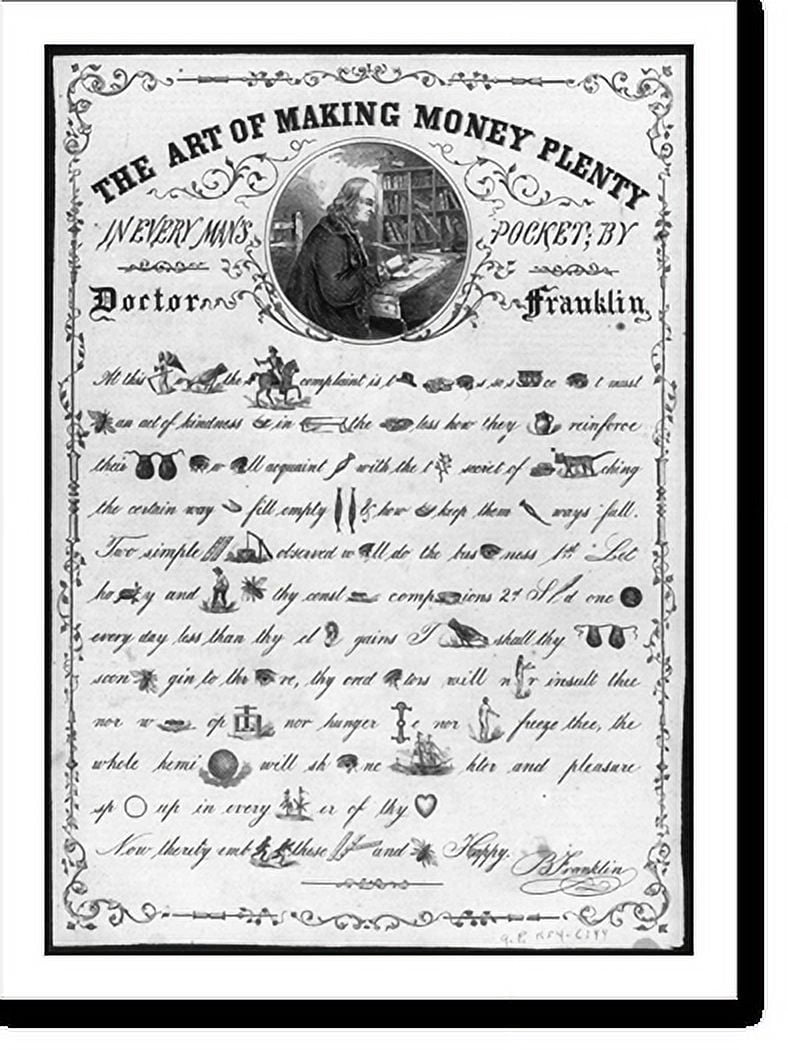 THE ART OF MAKING MONEY PLENTY
IN EVERY MAN'S POCKET; BY
Doctor Franklin
At this w the complaint is t s so s ce t must
an act of kindness in the less how they reinforce
their w ll acquaint with the t secret of ching
the certain way fill empty & how keep them ways full.
Two simple observed w ll do the bus ness 1st Let
ho y and thy const comp ions 2d S d one
every day less than thy cl gains T shall thy
soon gin to thr re, thy cred tors will n r insult thee
nor w op nor hunger e nor freeze thee, the
whole hemi will sh ne hter and pleasure
sp up in every er of thy
Now thereby emb these and Happy.
B Franklin